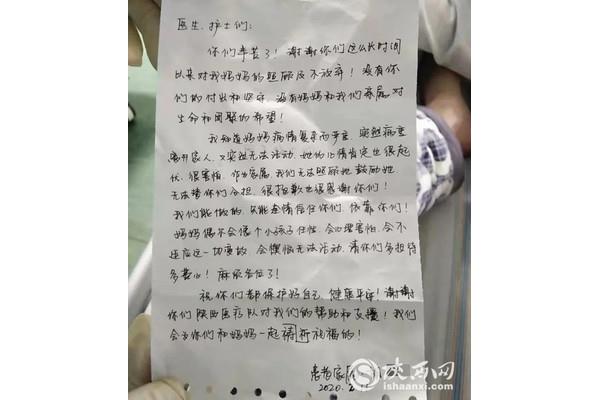 医生、护士们：
你们辛苦了！谢谢你们这么长时间
以来对我妈妈的照顾及不放弃！没有你
们的付出和坚守，没有妈妈和我们亲属对
生命和团聚的希望！
我知道妈妈病情复杂而严重，突然病重
离开家人，又突然无法活动，她的心情肯定也很起
伏、很害怕，作为家属，我们无法照顾她鼓励她
无法替你们分担，很抱歉也很感谢你们！
我们能做的，只能是请信任你们，依靠你们！
妈妈偶尔会像个小孩子任性，会心里害怕，会不
适应这一切变故，会懊恼无法活动，请你们多担待
多费心！麻烦各位了！
祝你们都保护好自己，健康平安！谢谢
你们陕西医疗队对我们的帮助和支援！我们
会为你们和妈妈一起祷祈祝福的！
患者家
2020.
陕西网
ishaanxi.com